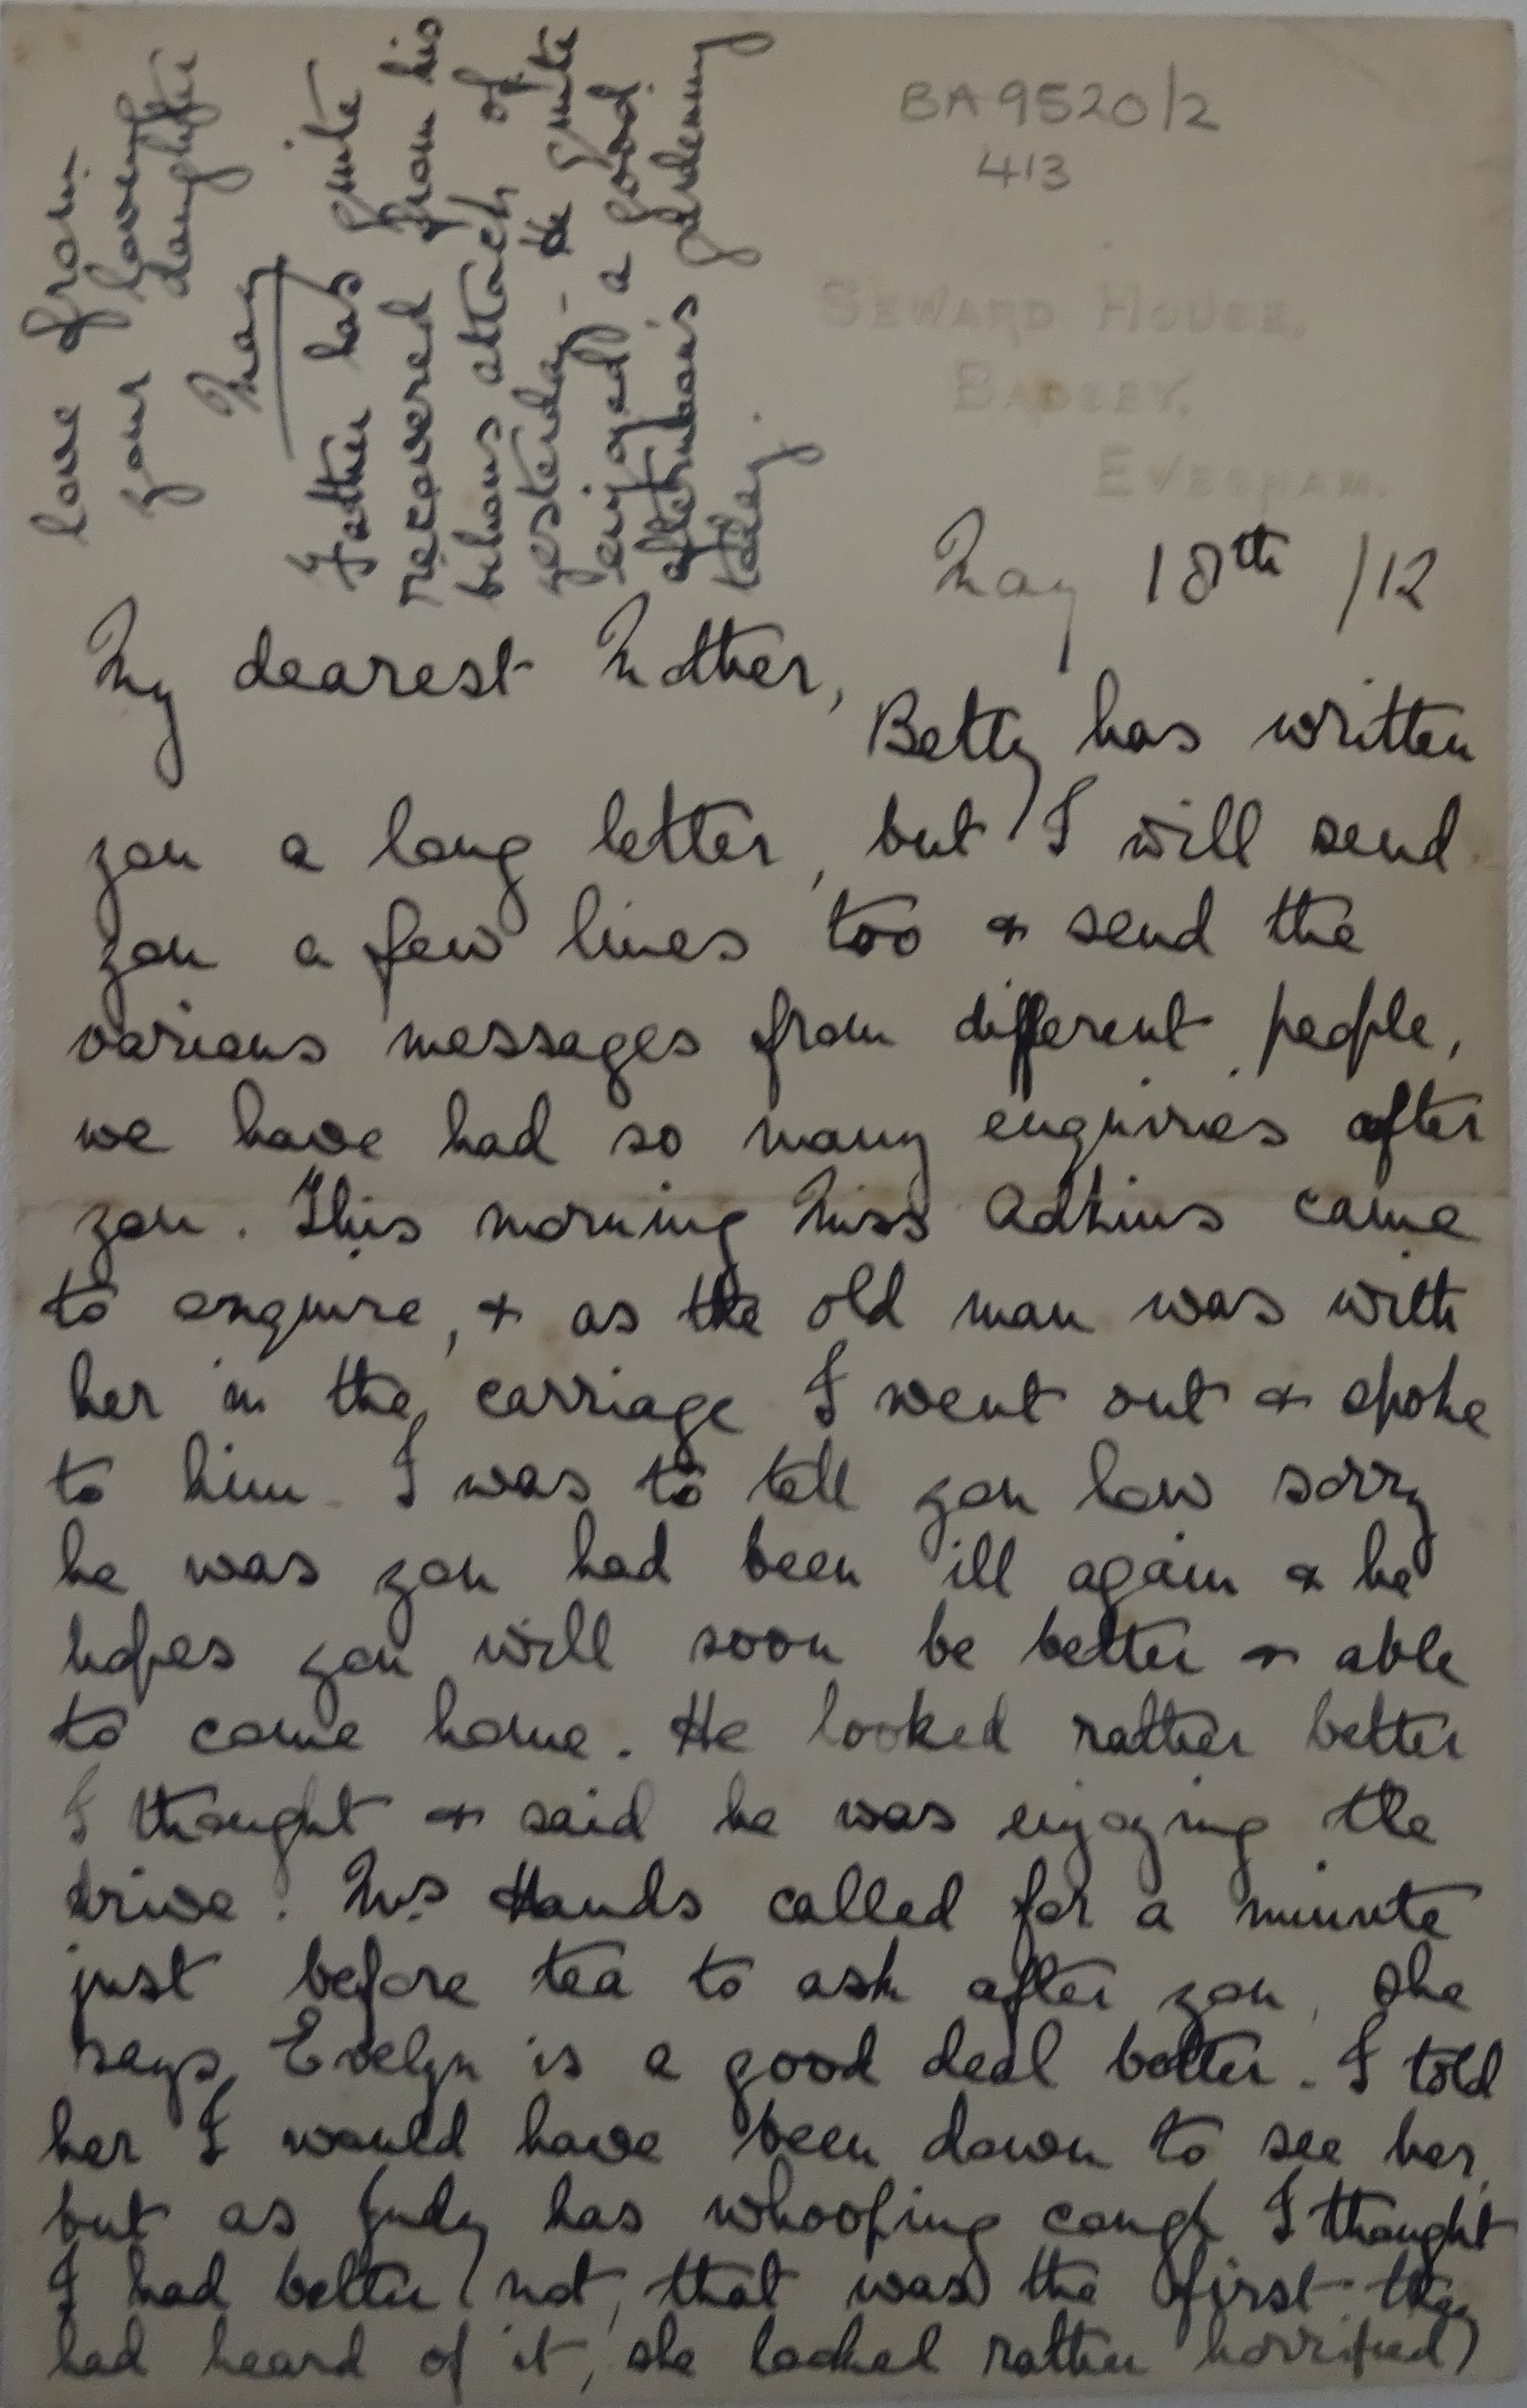 BA 9520/2
413
SEWARD HOUSE,
BADSEY,
EVESHAM.
May 18th /12
My dearest Mother,
Betty has written
you a long letter, but I will send
you a few lines too & send the
various messages from different people,
we have had so many enquiries after
you. This morning Miss Adkins came
to enquire, & as the old man was with
her in the carriage I went out & spoke
to him. I was to tell you how sorry
he was you had been ill again & he
hopes you will soon be better & able
to come home. He looked rather better
I thought & said he was enjoying the
drive. Mrs Hands called for a minute
just before tea to ask after you, she
says Evelyn is a good deal better. I told
her I would have been down to see her,
but as Judy has whooping cough I thought
I had better not, that was the first they
had heard of it, she looked rather horrified)
love from
your loving
daughter
May
Father has quite
recovered from his
bilious attack of
yesterday - He quite
enjoyed a good
afternoon's gardening
today.